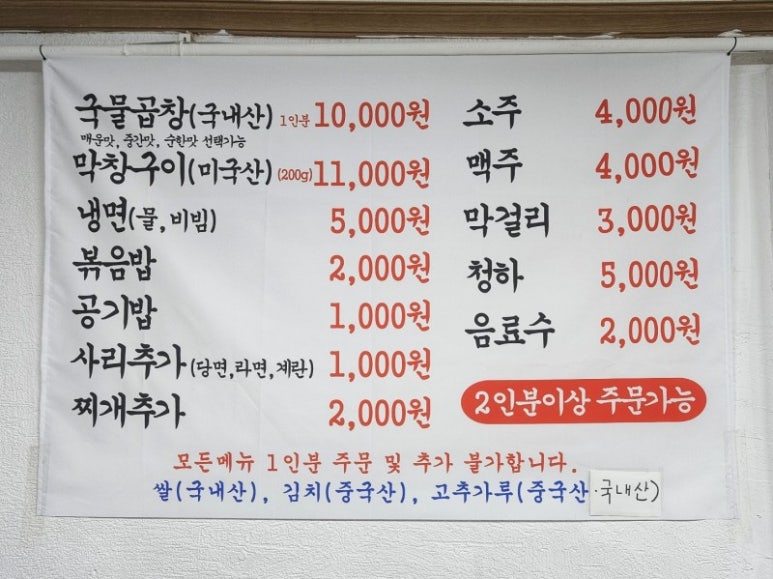 국물곱창(국내산) 1인분 10,000원
매운맛, 중간맛, 순한맛 선택가능
막창구이(미국산) (200g) 11,000원
냉면(물, 비빔) 5,000원
볶음밥 2,000원
공기밥 1,000원
사리추가(당면,라면,계란) 1,000원
찌개추가 2,000원
소주 4,000원
맥주 4,000원
막걸리 3,000원
청하 5,000원
음료수 2,000원
2인분이상 주문가능
모든메뉴 1인분 주문 및 추가 불가합니다.
쌀(국내산), 김치(중국산), 고추가루(중국산·국내산)